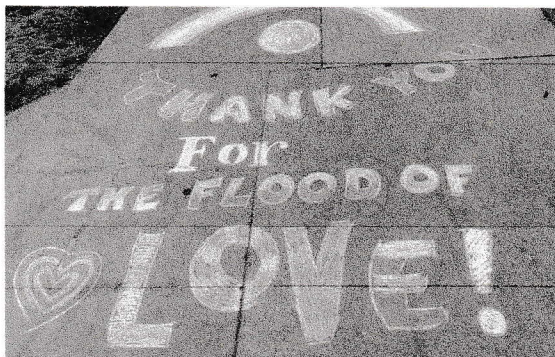 THANK YOU
For
THE FLOOD OF
LOVE!